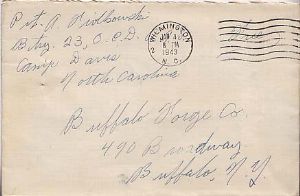 Pvt. A Ziolkowski
Btry. 23, O.C.D.
Camp Davis
North Carolina
WILMINGTON
JAN
8 PM
1943
N.C.
Free
Buffalo Forge Co.
490 Broadway
Buffalo, N.Y.